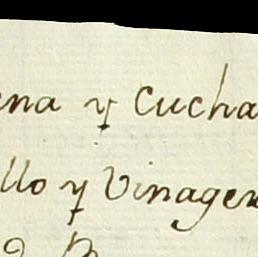 ena y Cucha
llo y Vinager